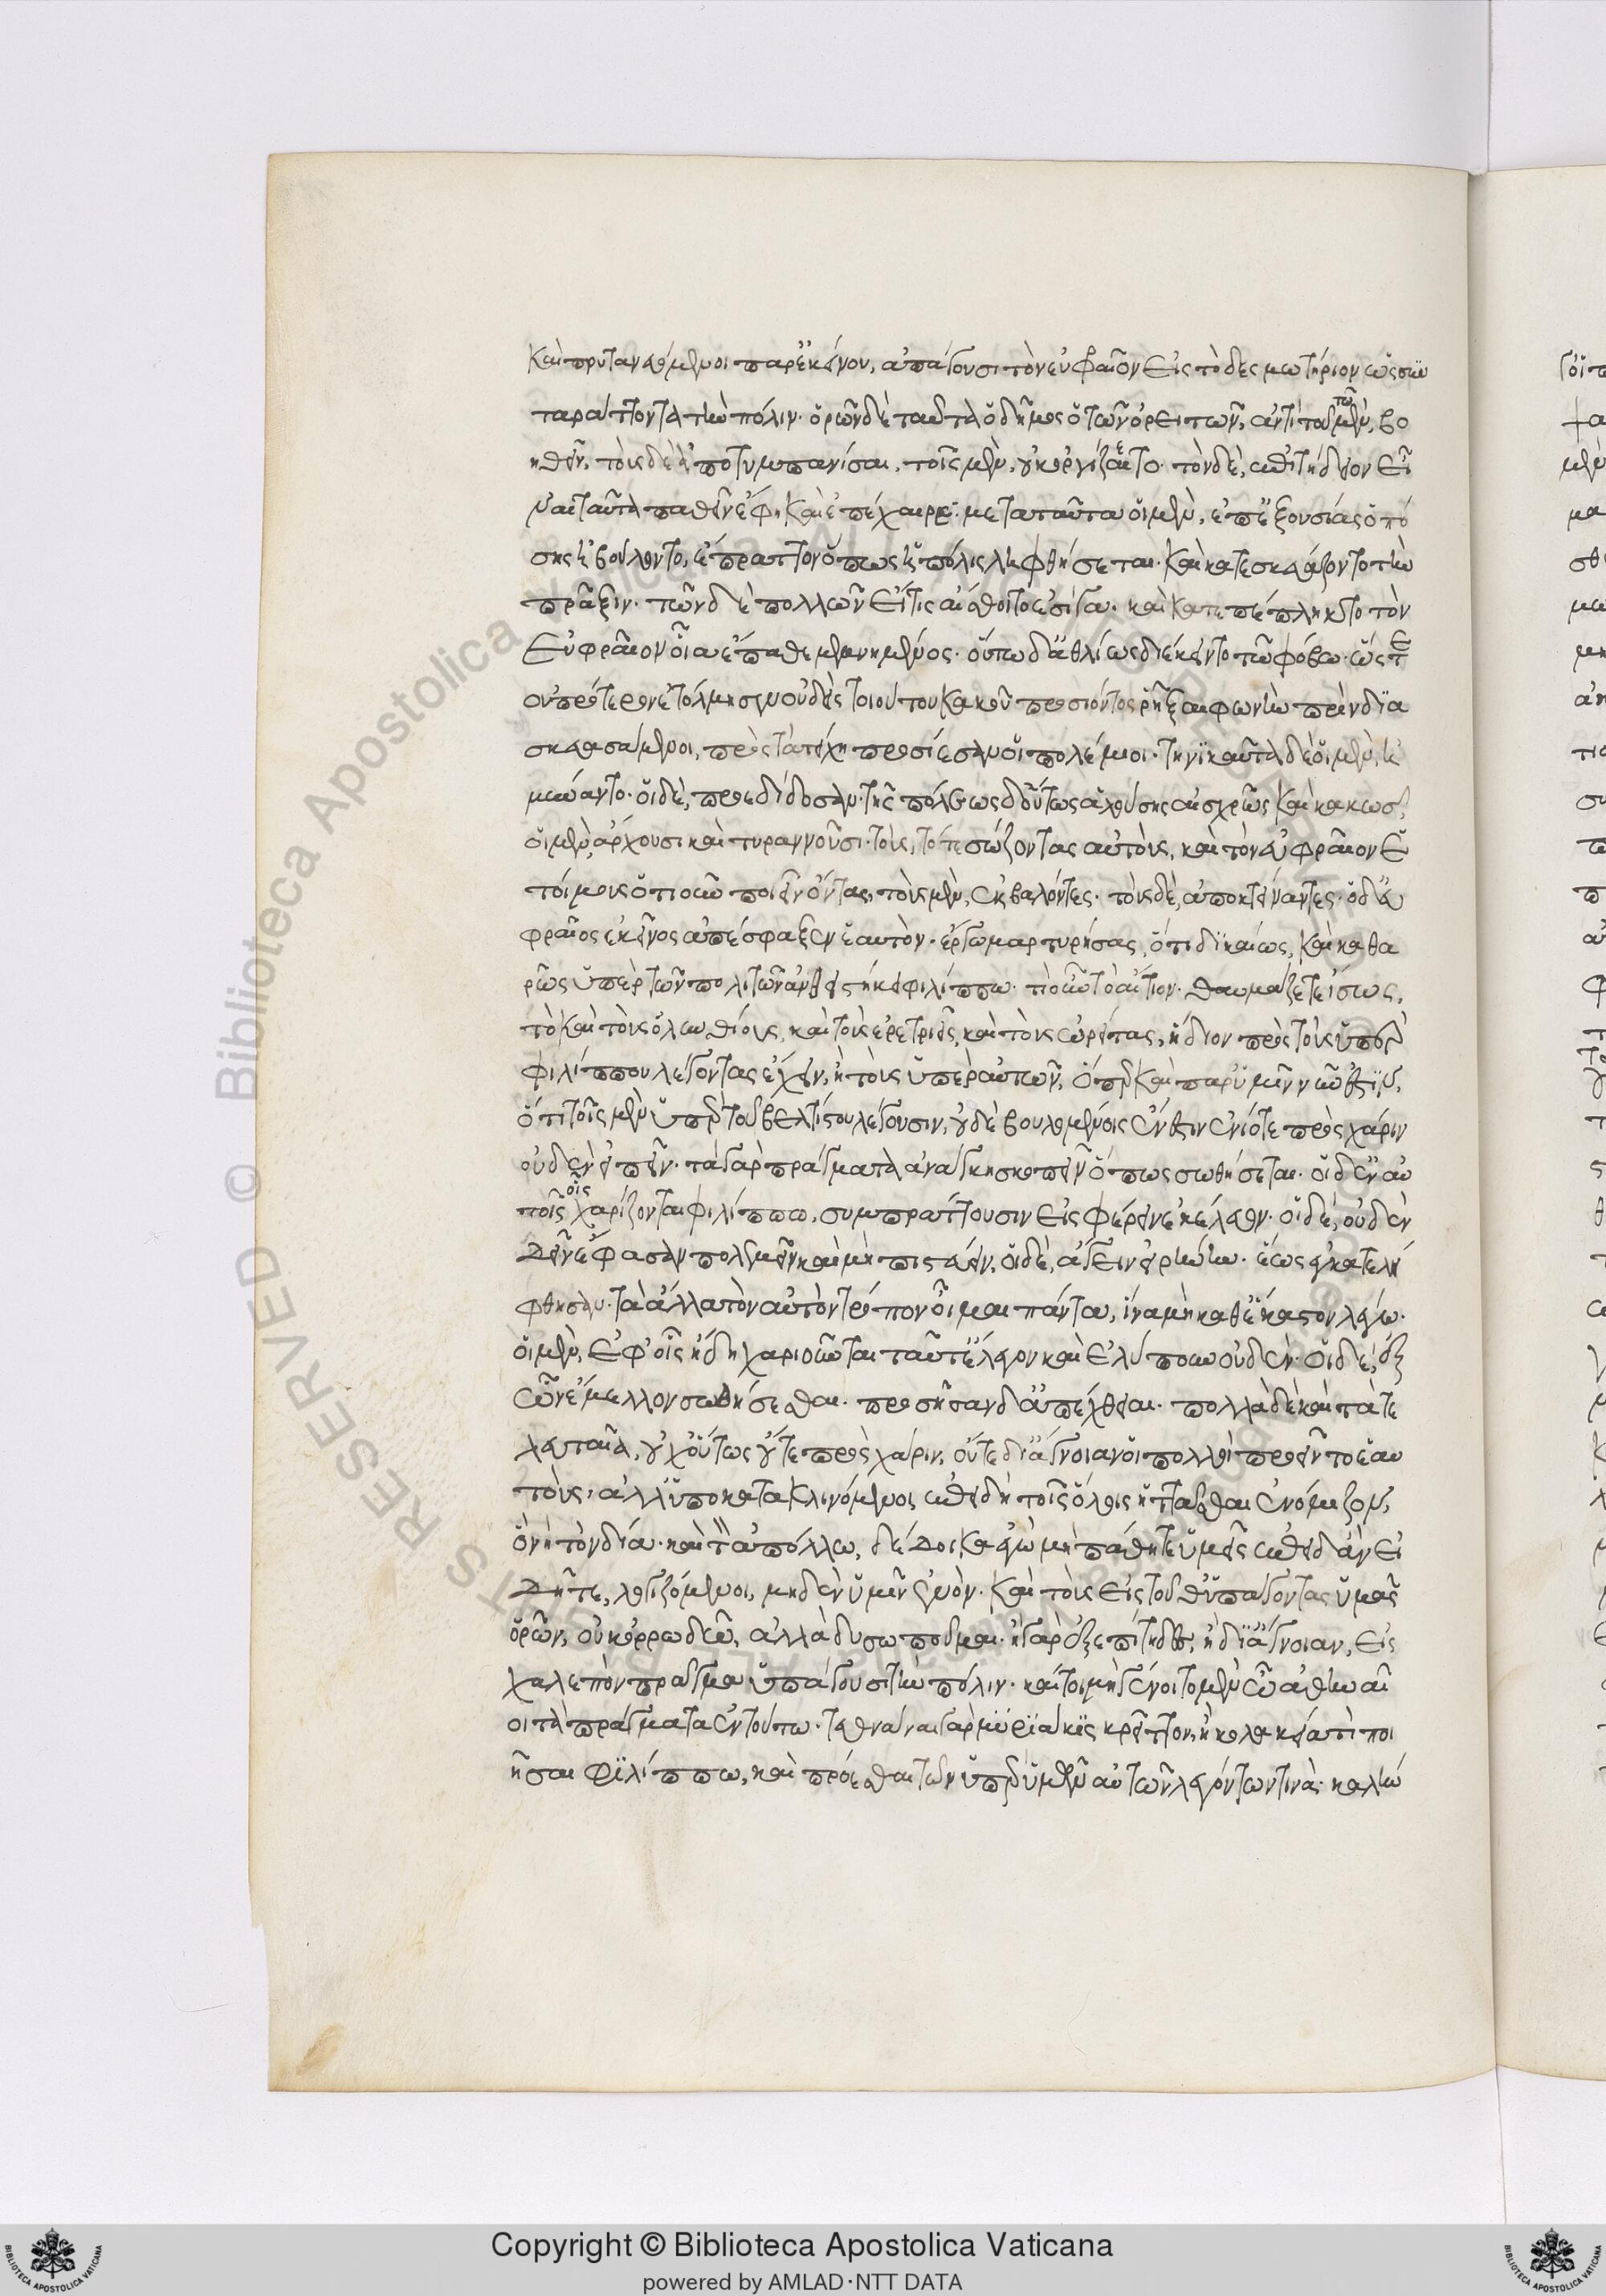 καὶ πρυτανευόμενοι παρ' ἐκείνου, ἀπάγουσι τὸν εὐφραῖον εἰς τὸ δεσμωτήριον ὡς συν
ταράττοντα τὴν πόλιν· ὁρῶν δὲ ταῦτα ὁ δῆμος ὁ τῶν ὀρειτῶν, ἀντὶ τοῦ τῶ μὲν, βο
ηθεῖν, τοὺς δὲ ἀποτυμπανίσαι, τοῖς μὲν, οὐκ ὠργίζετο· τὸν δὲ, ἐπιτήδειον εἶ
ναι ταῦτα παθεῖν ἔφη καὶ ἐπέχαιρε· μετὰ ταῦτα οἱ μὲν, ἐπ' ἐξουσίας ὁπό
σης ἐβούλοντο, ἔπραττον ὅπως ἡ πόλις ληφθήσεται· καὶ κατεσκευάζοντο τὴν
πρᾶξιν· τῶν δὲ πολλῶν εἴ τις αἴσθοιτο ἐσίγα· καὶ κατεπέπληκτο τὸν
εὐφραῖον οἷα ἔπαθε μεμνημένος· οὕτω δ' ἀθλίως διέκειντο τῶ φόβω· ὥστε
οὐ πρότερον ἐτόλμησεν οὐδεὶς τοιούτου κακοῦ προσιόντος ῥῆξαι φωνὴν πρὶν δια
σκευασάμενοι, πρὸς τὰ τείχη προσίεσαν οἱ πολέμιοι· τηνικαῦτα δὲ οἱ μὲν, ἠ
μύναντο· οἱ δὲ, προεδίδοσαν· τῆς πόλεως δ' οὕτως ἁλούσης αἰσχρῶς καὶ κακῶς,
οἱ μὲν ἄρχουσι καὶ τυραννοῦσι· τοὺς, τότε σώζοντας αὐτοὺς, καὶ τὸν εὐφραῖον ἑ
τοίμους ὁτιοῦν ποιεῖν ὄντας, τοὺς μὲν, ἐκβαλόντες· τοὺς δὲ, ἀποκτείναντες· ὁ δ' εὐ
φραῖος ἐκεῖνος ἀπέσφαξεν ἑαυτὸν· ἔργω μαρτυρήσας, ὅτι δικαίως, καὶ καθα
ρῶς ὑπὲρ τῶν πολιτῶν ἀνθειστήκει φιλίππω· τί οὖν τὸ αἴτιον· θαυμάζετε ἴσως,
τὸ καὶ τοὺς ὀλυνθίους, καὶ τοὺς ἐρετριεῖς, καὶ τοὺς ὠρείτας, ἥδιον πρὸς τοὺς ὑπὲρ
φιλίππου λέγοντας ἔχειν, ἢ τοὺς ὑπὲρ αὑτῶν, ὅπερ καὶ παρ' ὑμῖν νῦν ἐστίν,
ὅτι τοῖς μὲν ὑπὲρ τοῦ βελτίστου λέγουσιν, οὐδὲ βουλομένοις ἔνεστιν ἐνίοτε πρὸς χάριν
οὐδὲν εἰπεῖν· τὰ γὰρ πράγματα ἀνάγκη σκοπεῖν ὅπως σωθήσεται· οἱ δ' ἐν αὐ
τοῖς οἷς χαρίζονται φιλίππω, συμπράττουσιν εἰσφέρειν ἐκέλευον· οἱ δὲ, οὐδὲν
δεῖν ἔφασαν πολεμεῖν καὶ μὴ πιστεύειν, οἱ δὲ, ἄγειν εἰρήνην· ἕως ἐγκατελή
φθησαν· τὰ ἄλλα τὸν αὐτὸν τρόπον οἶμαι πάντα, ἵνα μὴ καθ' ἕκαστον λέγω·
οἱ μὲν, ἐφ' οἷς ἤδη χαριοῦνται ταῦτ' ἔλεγον καὶ ἐλύπουν οὐδέν· οἱ δὲ, ἐξ
ὧν ἔμελλον σωθήσεσθαι· προσῆσαν δ' ἀπέχθειαι· πολλὰ δὲ καὶ τὰ τε
λευταῖα, οὐχ οὕτως οὔτε πρὸς χάριν, οὔτε δι' ἄγνοιαν οἱ πολλοὶ προσεῖντο ἑαυ
τοὺς· ἀλλ' ὑποκατακλινόμενοι ἐπειδὴ τοῖς ὅλοις ἡττᾶσθαι ἐνόμιζον,
ὃ νὴ τὸν δία· καὶ τὸν ἀπόλλω, δέδοικα ἐγὼ μὴ πάθητε ὑμεῖς ἐπειδὰν εἰ
δῆτε, λογιζόμενοι, μηδὲν ὑμῖν ἐνόν· καὶ τοὺς εἰς τοῦθ' ὑπάγοντας ὑμᾶς
ὁρῶν, οὐκ ὀρρωδῶ, ἀλλὰ δυσωποῦμαι· ἢ γὰρ ἐξεπίτηδες, ἢ δι' ἄγνοιαν, εἰς
χαλεπὸν πρᾶγμα ὑπάγουσι τὴν πόλιν· καίτοι μὴ γένοιτο μὲν ὦ ἀθηναῖ
οι τὰ πράγματα ἐν τούτω· τεθνάναι γὰρ μυριάκις κρεῖττον, ἢ κολακείᾳ τι ποι
ῆσαι φιλίππω, καὶ προέσθαι τῶν ὑπὲρ ὑμῶν αὐτῶν λεγόντων τινὰς· καλήν
Copyright © Biblioteca Apostolica Vaticana
powered by AMLAD·NTT DATA